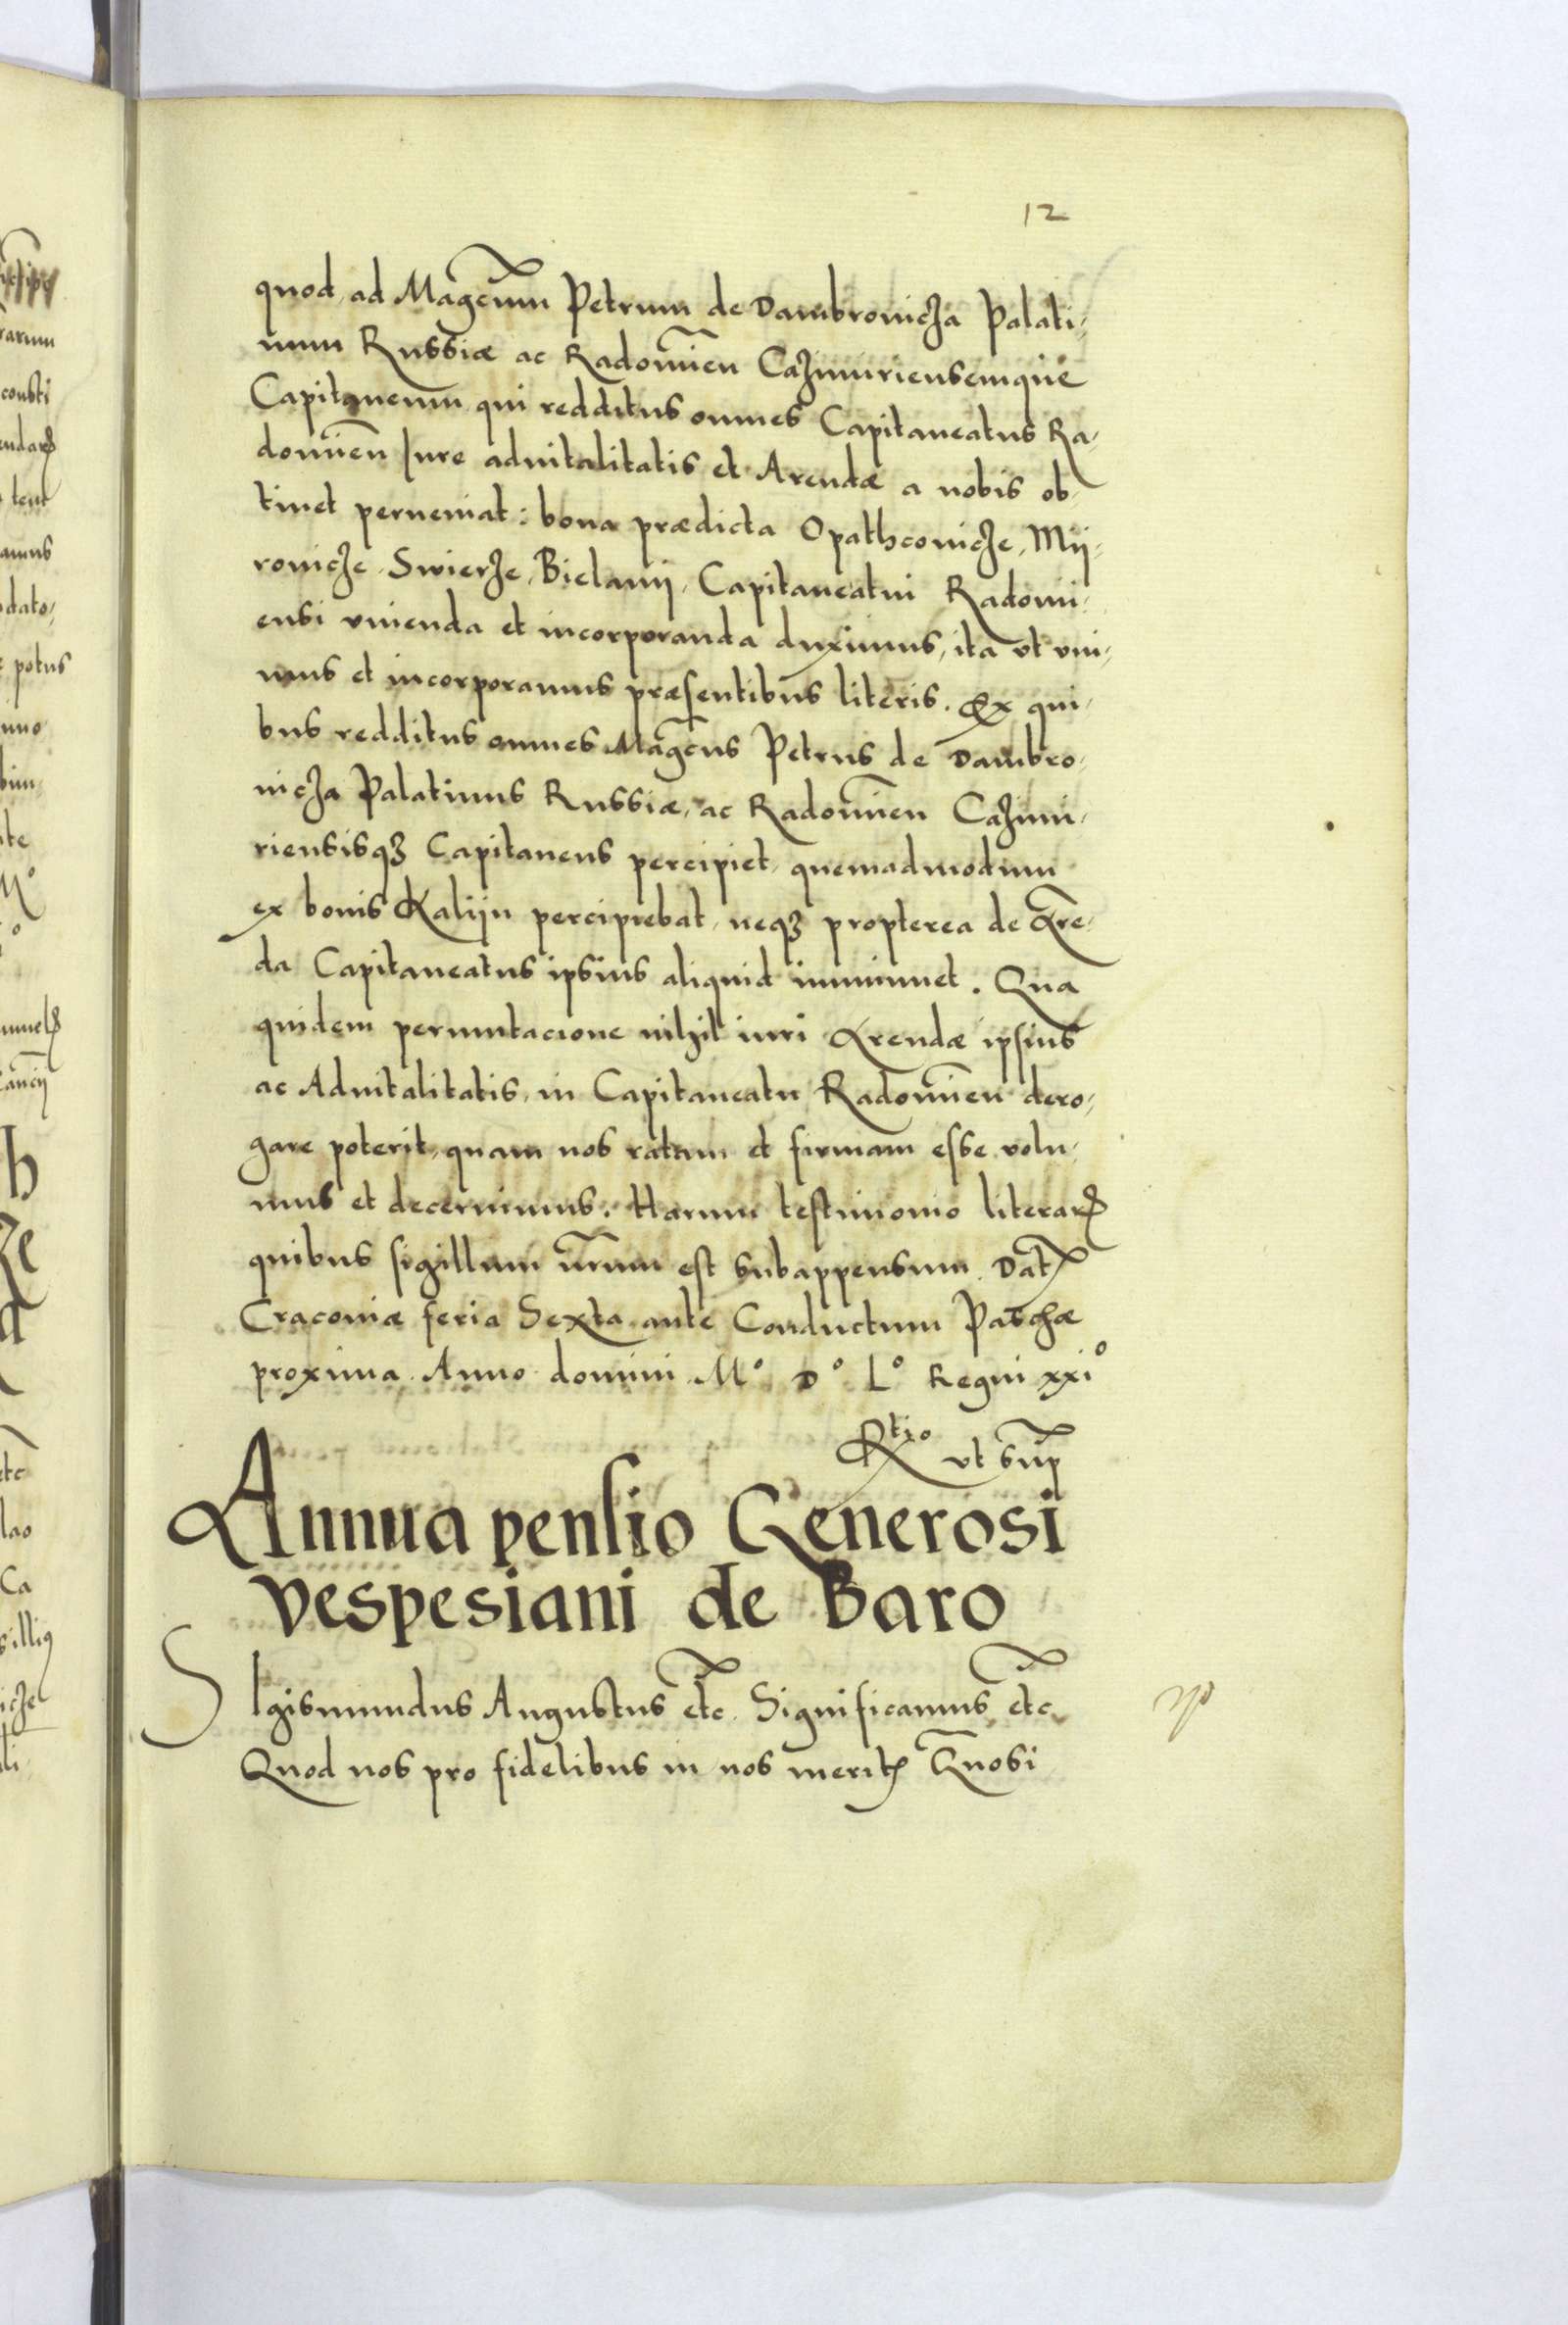 12
quod ad Magcum Petrum de Dambrowicza Palati-
num Russiæ ac Radomien Cazimiriensemque
Capitaneum qui redditus omnes Capitaneatus Ra-
domien Iure aduitalitatis et Arendæ a nobis ob-
tinet perueniat: bona prædicta Opathcowicze, Mij-
rowicze, Swierze, Bielanij, Capitaneatui Radomi-
ensi vnienda et incorporanda duximus, ita vt vni-
mus et incorporamus præsentibus literis. Ex qui-
bus redditus omnes Magcus Petrus de Dambro-
wicza Palatinus Russiæ, ac Radomien Cazimi-
riensisqꝫ Capitaneus percipiet, quemadmodum
ex bonis Kalijn percipiebat, neqꝫ propterea de Are-
da Capitaneatus ipsius aliquid imminuet. Qua
quidem permutacione nihil iuri Arendæ ipsius
ac Aduitalitatis, in Capitaneatu Radomien dero-
gare poterit, quam nos ratam et firmam esse volu-
mus et decernimus. Harum testimonio literarꝝ
quibus sigillum nrum est subappensum. Dat
Cracouiæ feria Sexta ante Conductum Paschæ
proxima. Anno domini M° D° L° Regni xxi°
Rtio vt sup
Annua pensio Generosi
Vespesiani de Baro
SIgismundus Augustus etc. Significamus etc.
Quod nos pro fidelibus in nos merit Gnosi